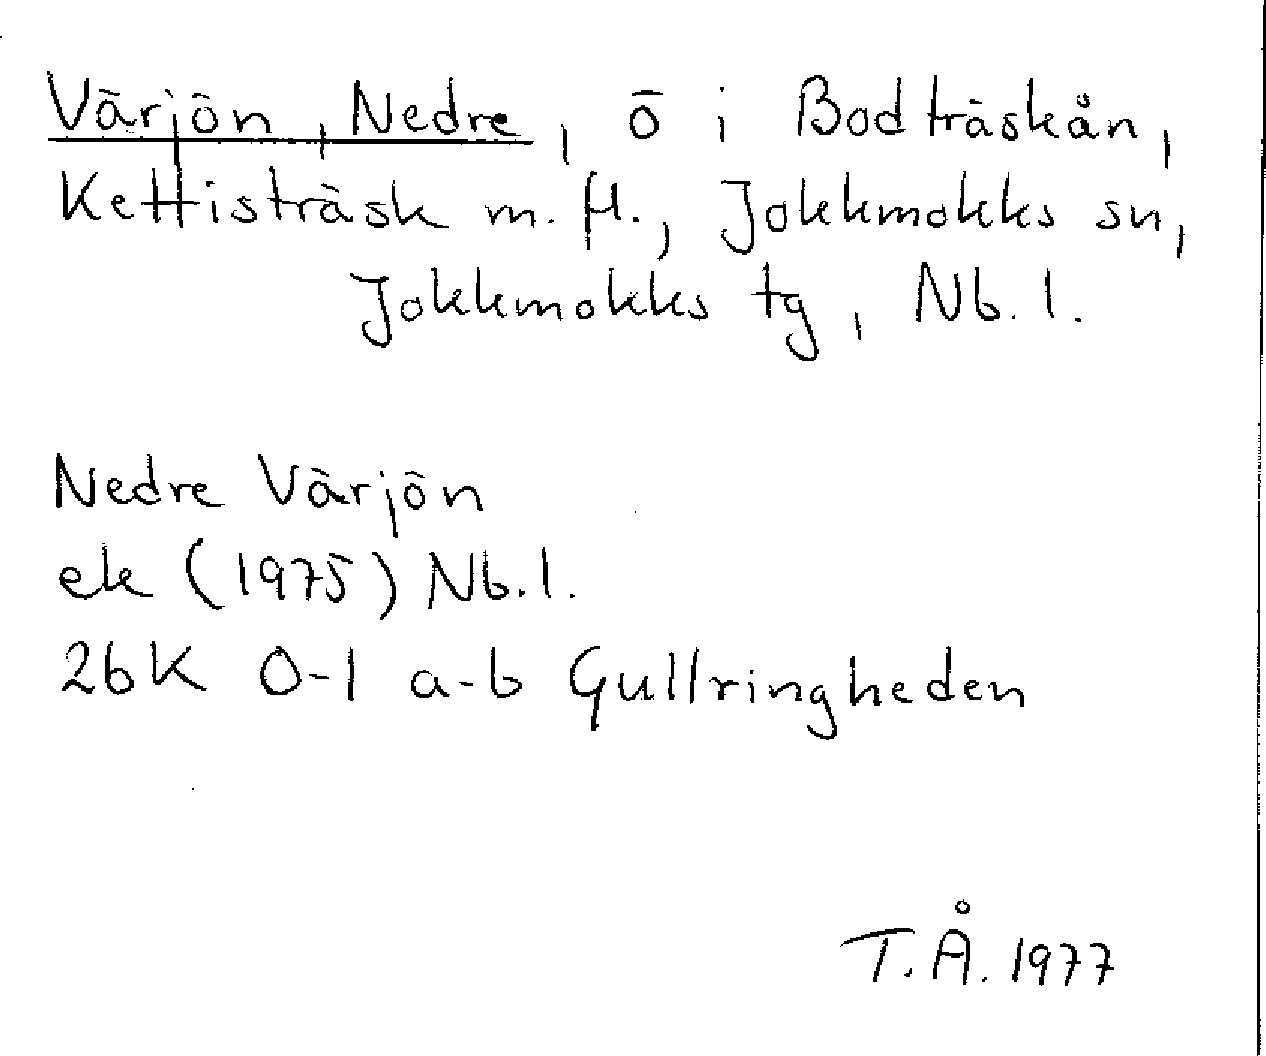 Värjön, Nedre, ö i Bodträskån,
Kettisträsk m. fl., Jokkmokks sn,
Jokkmokks tg, Nb. l.
Nedre Värjön
ek (1975) Nb. l.
26K 0-1 a-b Gullringheden
T.Å. 1977